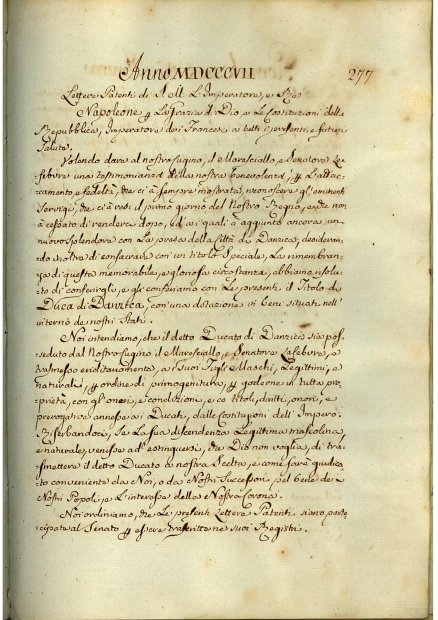 Anno MDCCCVII
277
Lettere Patenti di S. M. L'Imperatore, e Re
Napoleone p la grazia di Dio, e le Costituzioni della
Repubblica, Imperatore dei Francesi, a tutti i presenti, e futuri
Salute.
Volendo dare al nostro Cugino, il Maresciallo, e Senatore Le-
febvre una testimonianza della nostra benevolenza, p l'attac-
camento, e fedeltà, che ci à sempre mostrata, riconoscere gl'eminenti
servigi, che ci à resi il primo giorno del Nostro Regno, che non
à cessato di renderci dopo, ed ai quali à aggiunto ancora un
nuovo splendore con la presa della Città di Danzica; desideran-
do inoltre di consacrare con un titolo speciale, la rimembran-
za di questa memorabile, e gloriosa circostanza, abbiamo risolu-
to di conferirgli, e gli conferiamo con le presenti il titolo di
Duca di Danzica, con una dotazione in beni situati nell'
interno de nostri Stati.
Noi intendiamo, che il detto Ducato di Danzica sia pos-
seduto dal Nostro Cugino il Maresciallo, e Senatore Lefebvre, e
trasmesso ereditariamente, a suoi Figli Maschi, Legittimi, e
naturali, p ordine di primogenitura, p goderne in tutta pro-
prietà, con gl'oneri, e condizioni, e co titoli, diritti, onori, e
prerogative annesse ai Ducati, dalle Costituzioni dell'Impero.
Riserbandoci, se la sua discendenza Legittima mascolina,
e naturale, venisse ad estinguersi, che Dio non voglia, di tra-
smettere il detto Ducato a nostra Scelta, e come sarà giudica-
to conveniente da Noi, o da Nostri Successori, pel bene de i
Nostri Popoli, e l'interesse della Nostra Corona.
Noi ordiniamo, che le presenti Lettere Patenti siano parte-
cipate al Senato p essere trascritte ne suoi Registri.